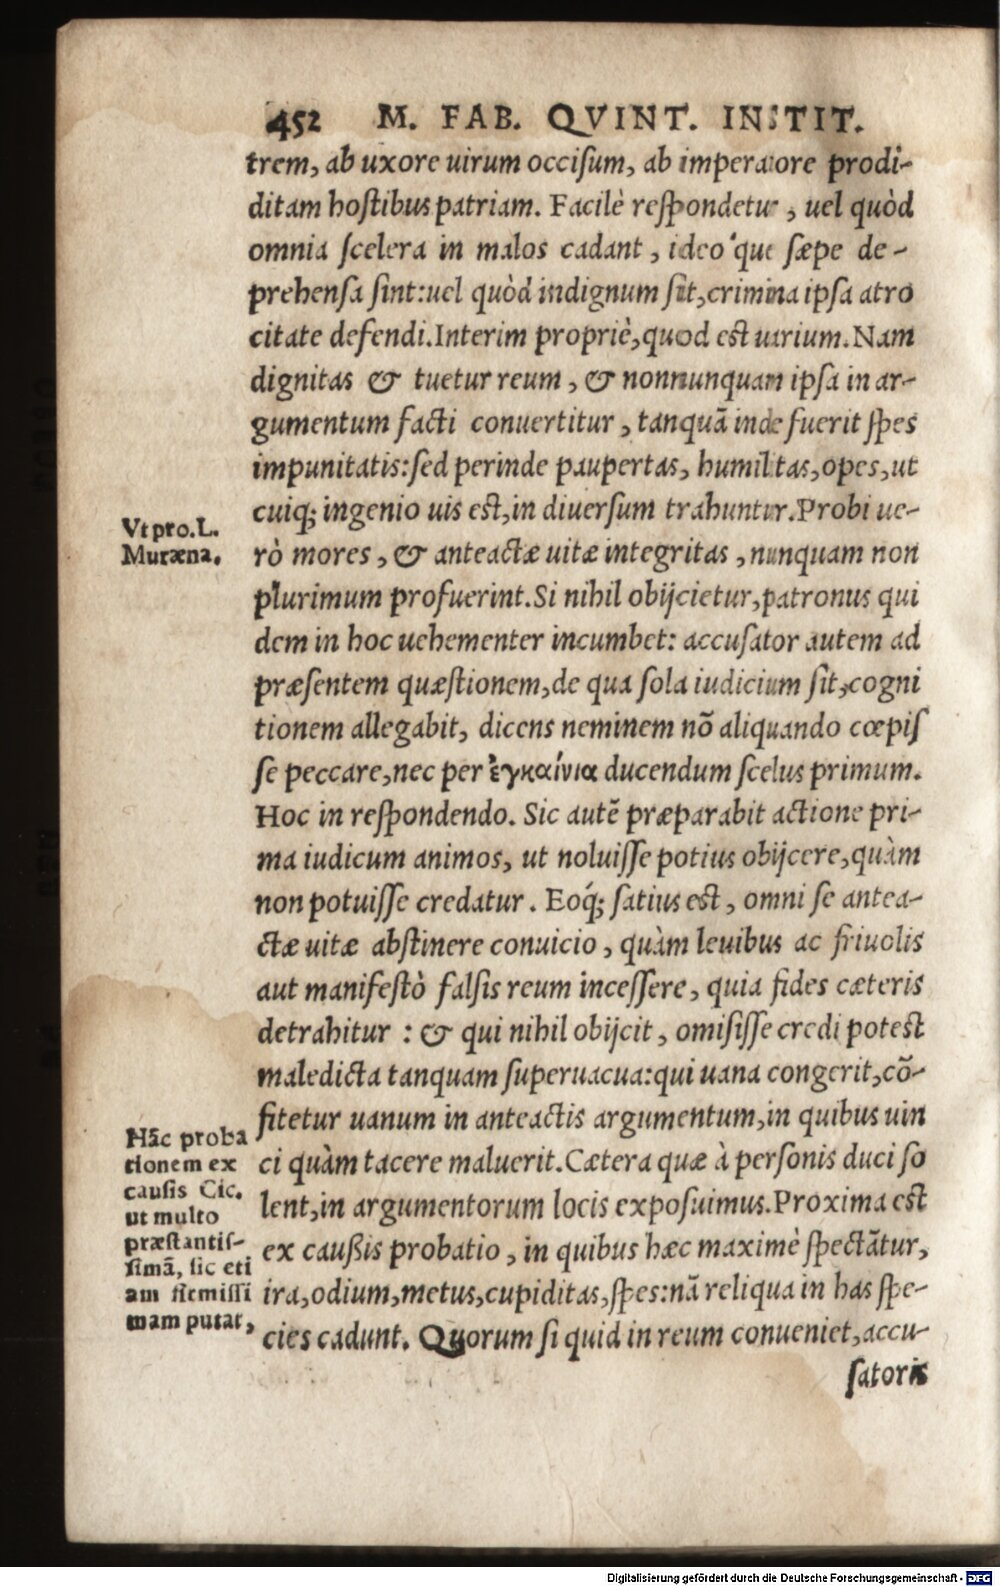 452 M. FAB. QVINT. INSTIT.
trem, ab uxore uirum occiſum, ab imperatore prodi-
ditam hoſtibus patriam. Facilè reſpondetur, uel quòd
omnia ſcelera in malos cadant, ideo'que ſæpe de-
prehenſa ſint:uel quòd indignum ſit,crimina ipſa atro
citate defendi.Interim propriè,quod est uarium.Nam
dignitas & tuetur reum, & nonnunquam ipſa in ar-
gumentum facti conuertitur, tanquã inde fuerit ſpes
impunitatis:ſed perinde paupertas, humilitas,opes,ut
cuiq; ingenio uis est,in diuerſum trahuntur.Probi ue-
Vt pro.L.
Muræna.
rò mores, & anteactæ uitæ integritas, nunquam non
plurimum profuerint.Si nihil obijcietur,patronus qui
dem in hoc uehementer incumbet: accuſator autem ad
præſentem quæſtionem,de qua ſola iudicium ſit,cogni
tionem allegabit, dicens neminem nõ aliquando cœpiſ
ſe peccare,nec per ἐγκαίνια ducendum ſcelus primum.
Hoc in reſpondendo. Sic autẽ præparabit actione pri-
ma iudicum animos, ut noluiſſe potius obijcere,quàm
non potuiſſe credatur. Eoq́; ſatius est, omni ſe antea-
ctæ uitæ abſtinere conuicio, quàm leuibus ac friuolis
aut manifeſtò falſis reum inceſſere, quia fides cæteris
detrahitur : & qui nihil obijcit, omiſiſſe credi potest
maledicta tanquam ſuperuacua:qui uana congerit,cõ-
fitetur uanum in anteactis argumentum,in quibus uin
ci quàm tacere maluerit.Cætera quæ à perſonis duci ſo
lent,in argumentorum locis expoſuimus.Proxima est
ex cauſſis probatio, in quibus hæc maximè ſpectãtur,
ira,odium,metus,cupiditas,ſpes:nã reliqua in has ſpe-
cies cadunt. Quorum ſi quid in reum conueniet,accu-
Hãc proba
tionem ex
cauſis Cic.
ut multo
præſtantiſ-
ſimã, ſic eti
am firmiſſi
mam putat,
ſatoris
Digitalisierung gefördert durch die Deutsche Forschungsgemeinschaft - DFG